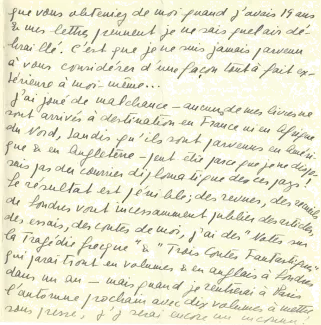 que vous obteniez de moi quand j'avais 19 ans
& mes lettres prennent je ne sais quel air dé-
braillé. C'est que je ne suis jamais parvenu
à vous considérer d'une façon tout à fait ex-
térieure à moi-même...
J'ai joué de malchance – aucun de mes livres ne
sont arrivés à destination en France ni en Afrique
du Nord, tandis qu'ils sont parvenus en Améri-
que & en Angleterre – peut-être parce que je ne dispo-
sais pas du courrier diplomatique des ces pays!
Le résultat est pénible; des revues, des recueils
de Londres vont incessamment publier des articles
des essais, des contes de moi, j'ai des "Notes sur
la Tragédie Grecque" & "Trois Contes Fantastiques"
qui paraîtront en volumes & en anglais à Londres
dans un an – mais quand je rentrerai à Paris
l'automne prochain avec dix volumes à mettre
sous presse, j'y serai encore un inconnu!